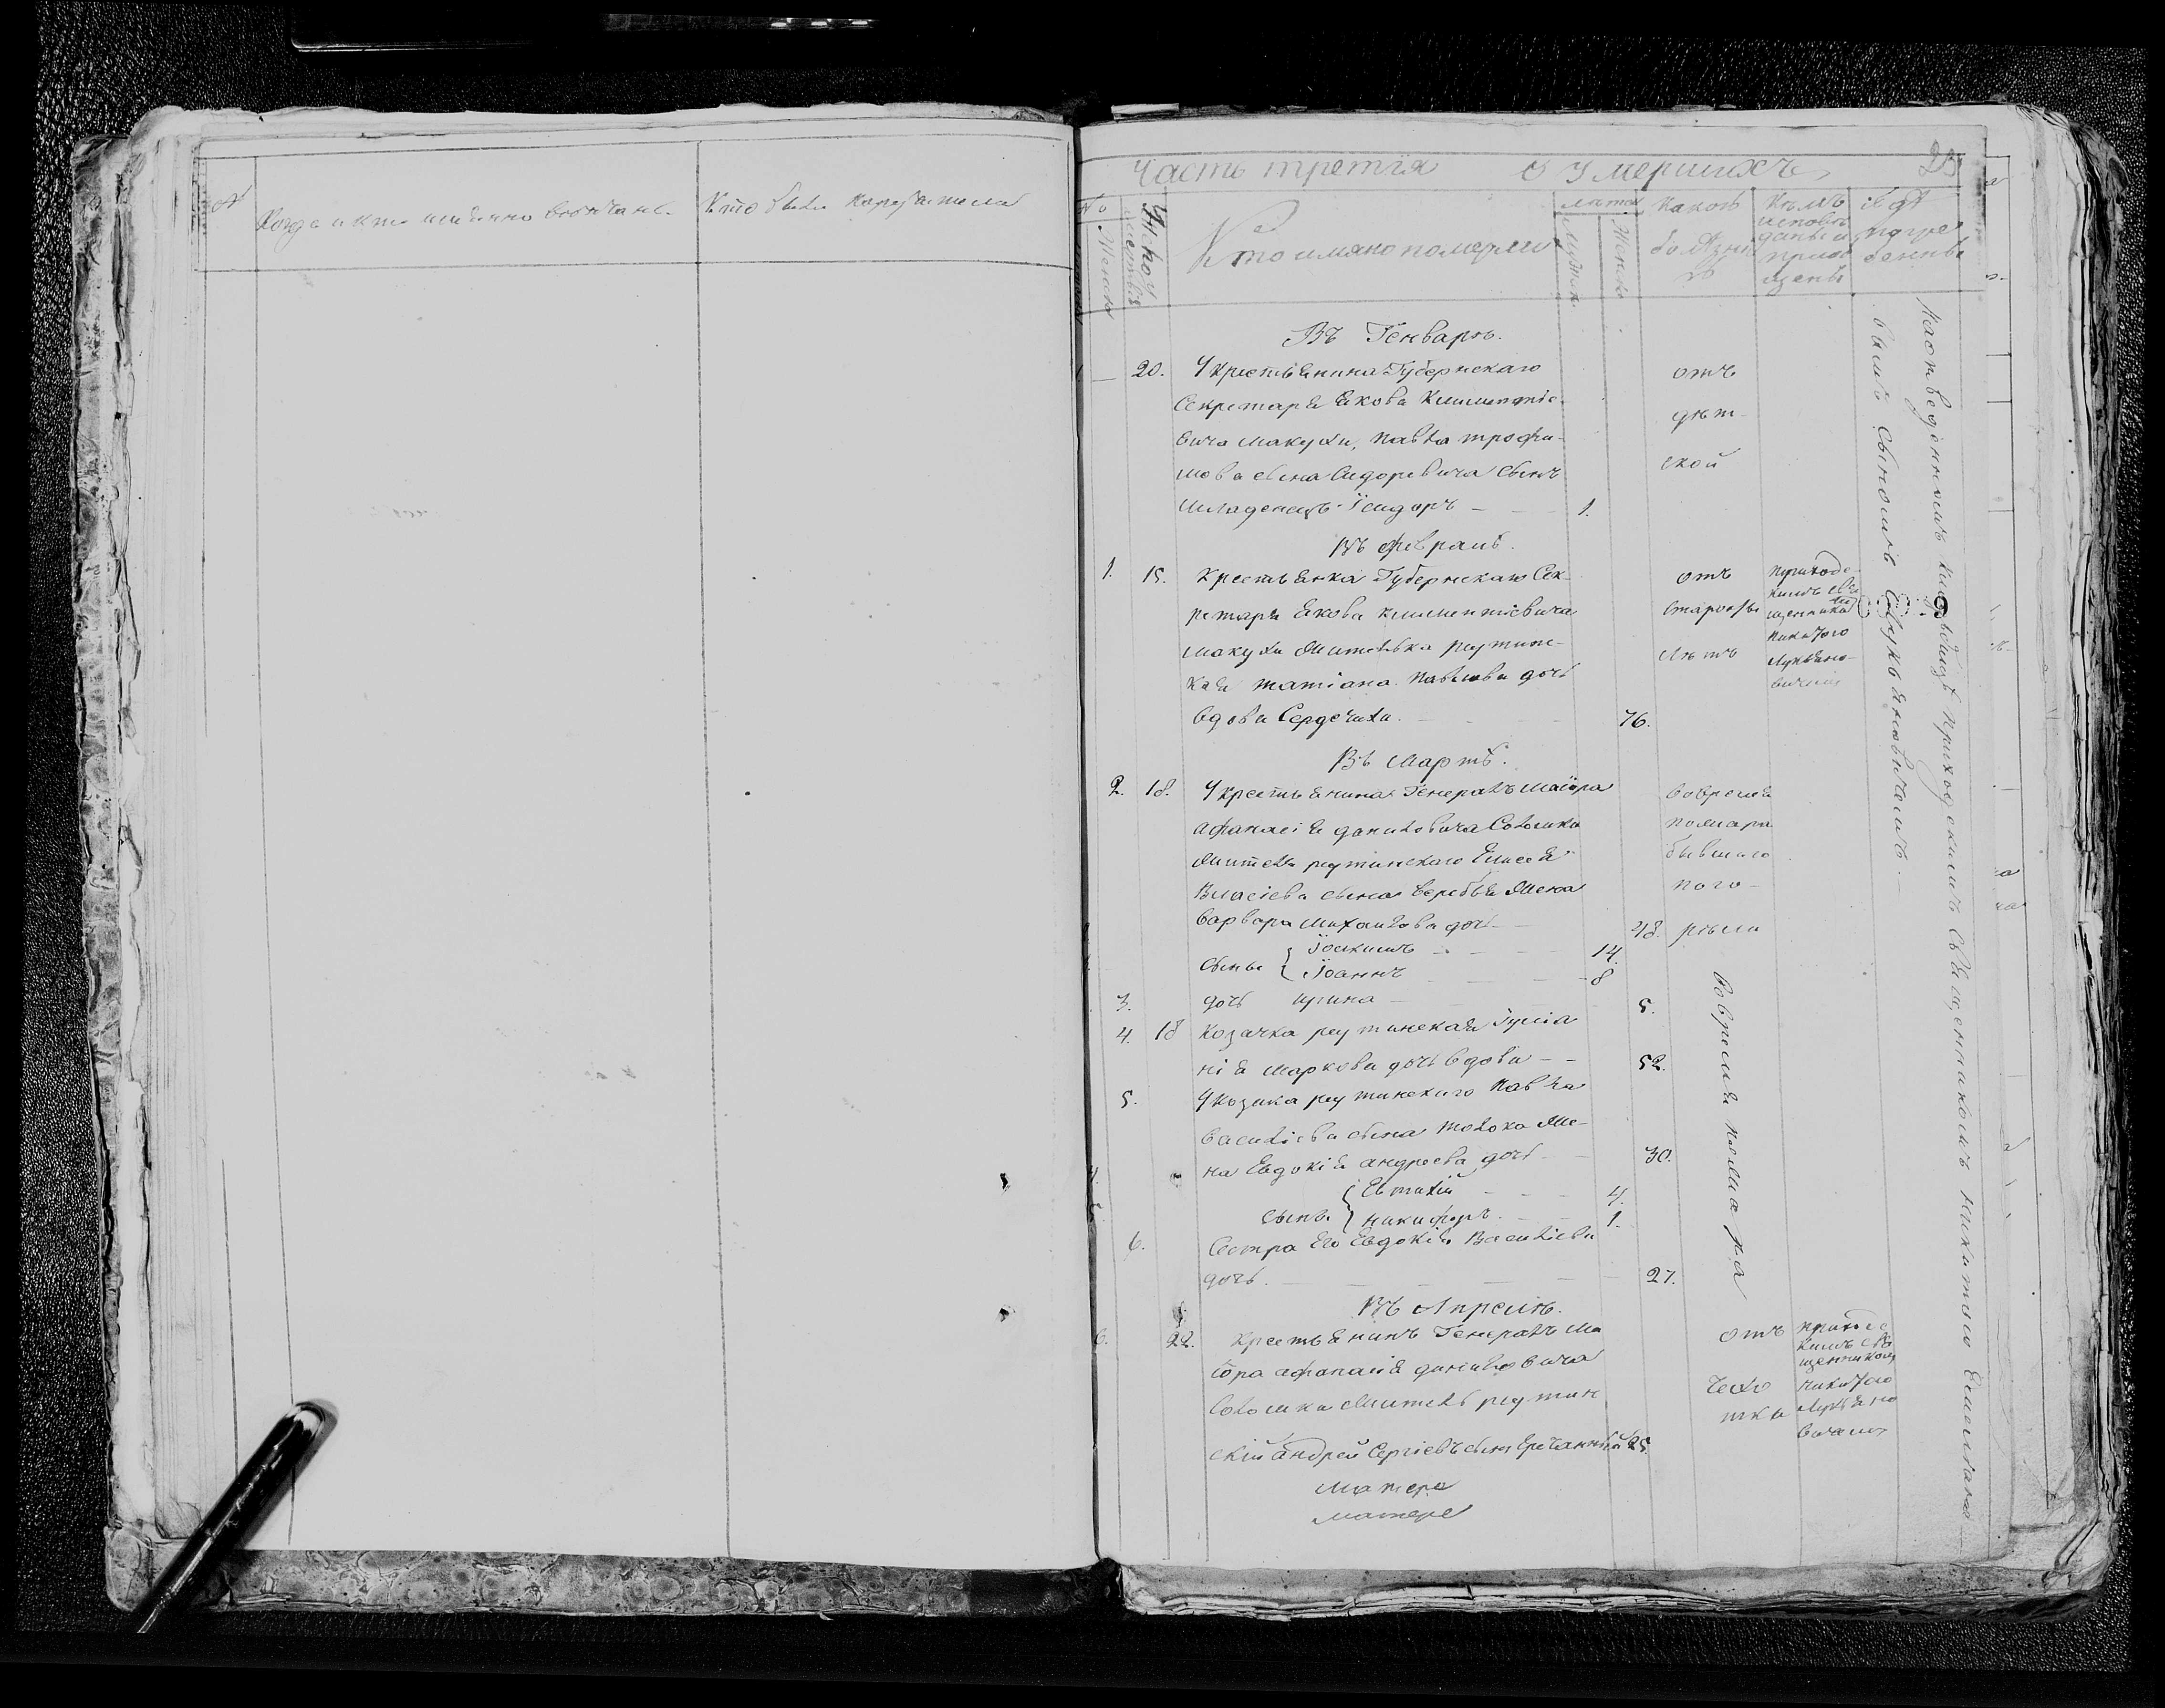 №
Когда и кто именно венчанъ
Кто были поручители
Часть третія о умершихъ
25
№
Женска
Число
Кто имяно померли
лѣта
Мужеска
Женска
Какою
болѣзнію
Кѣмъ
исповѣ
даны и
приоб
щены
Гдѣ
погре
бенны
Въ Генварѣ.
20. У крестьянина Губернскаго
Секретаря Якова Климентіе-
вича Макухи, Павла Трофи-
мова сына Сидоревича сынъ
младенецъ Ісидоръ - 1.
отъ
дѣт-
ской
Въ Февралѣ.
1. 15. Крестьянка Губернскаго Сек-
ретаря Якова Климентіевича
Макухи жителька реутинс-
кая Татіана Павлова дочь
вдова Сердечиха. 76.
отъ
старости
лѣтъ
приходс-
кимъ свя
щенникомъ
Никитою
Лукьяно-
вичемъ
Въ Мартѣ.
2. 18. У крестьянина Генералъ Маіора
Афанасія Даниловича Соломки
жителя реутинскаго Елисея
Власіева сына Веребья жена
Варвара Михайлова дочь - 48.
сыны Іоакимъ - 14.
Іоаннъ - 8
3. дочь Ирина - 5.
во время
пожара
бывшаго
пого-
рѣли
4. 18 Козачка реутинская Іуліа
нія Маркова дочь вдова - - 52.
5. У козака реутинскаго Павла
Василіева сына Толока же-
на Евдокія Андреева дочь - 30.
сыны Евтихій - 4.
Никифоръ - 1.
6. Сестра его Евдокія Василіева
дочь. - 27.
во время пожара
Въ Апрелѣ.
6. 22. Крестьянинъ Генералъ Ма
іора Афанасія Даниловича
Соломки житель реутин
скій Андрей Сергіевъ сынъ 25
отъ
чехо
тки
приходс
кимъ свя
щенникомъ
Никитою
Лукьяно
вичемъ
Матере
матере
На отведенномъ кладбищѣ приходскимъ священникомъ Никитою Емеліано
вымъ сыномъ Лукьяновичемъ.